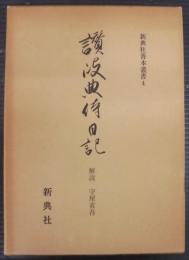 新典社善本叢書4
讃岐典侍日記
解説 守屋省吾
新典社